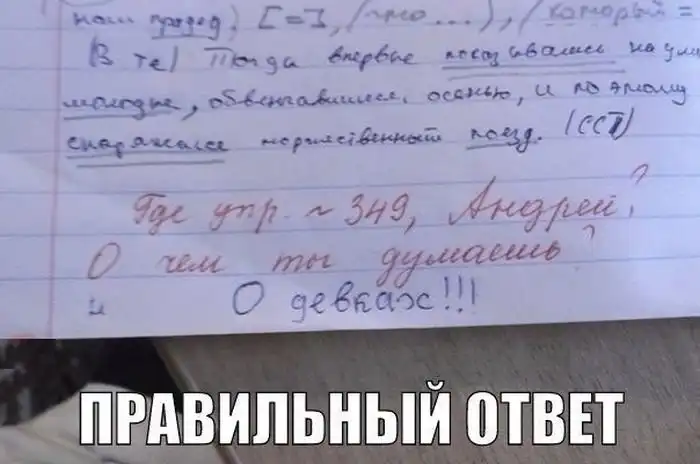 наш прадед, [=], (что...), (который =
(В те) Тогда впервые показывались на ули
молодые, обвенчавшиеся осенью, и поэтому
снаряжался торжественный поезд. (ССП)
Где упр. ~ 349, Андрей?
О чем ты думаешь?
и О девках!!!
ПРАВИЛЬНЫЙ ОТВЕТ